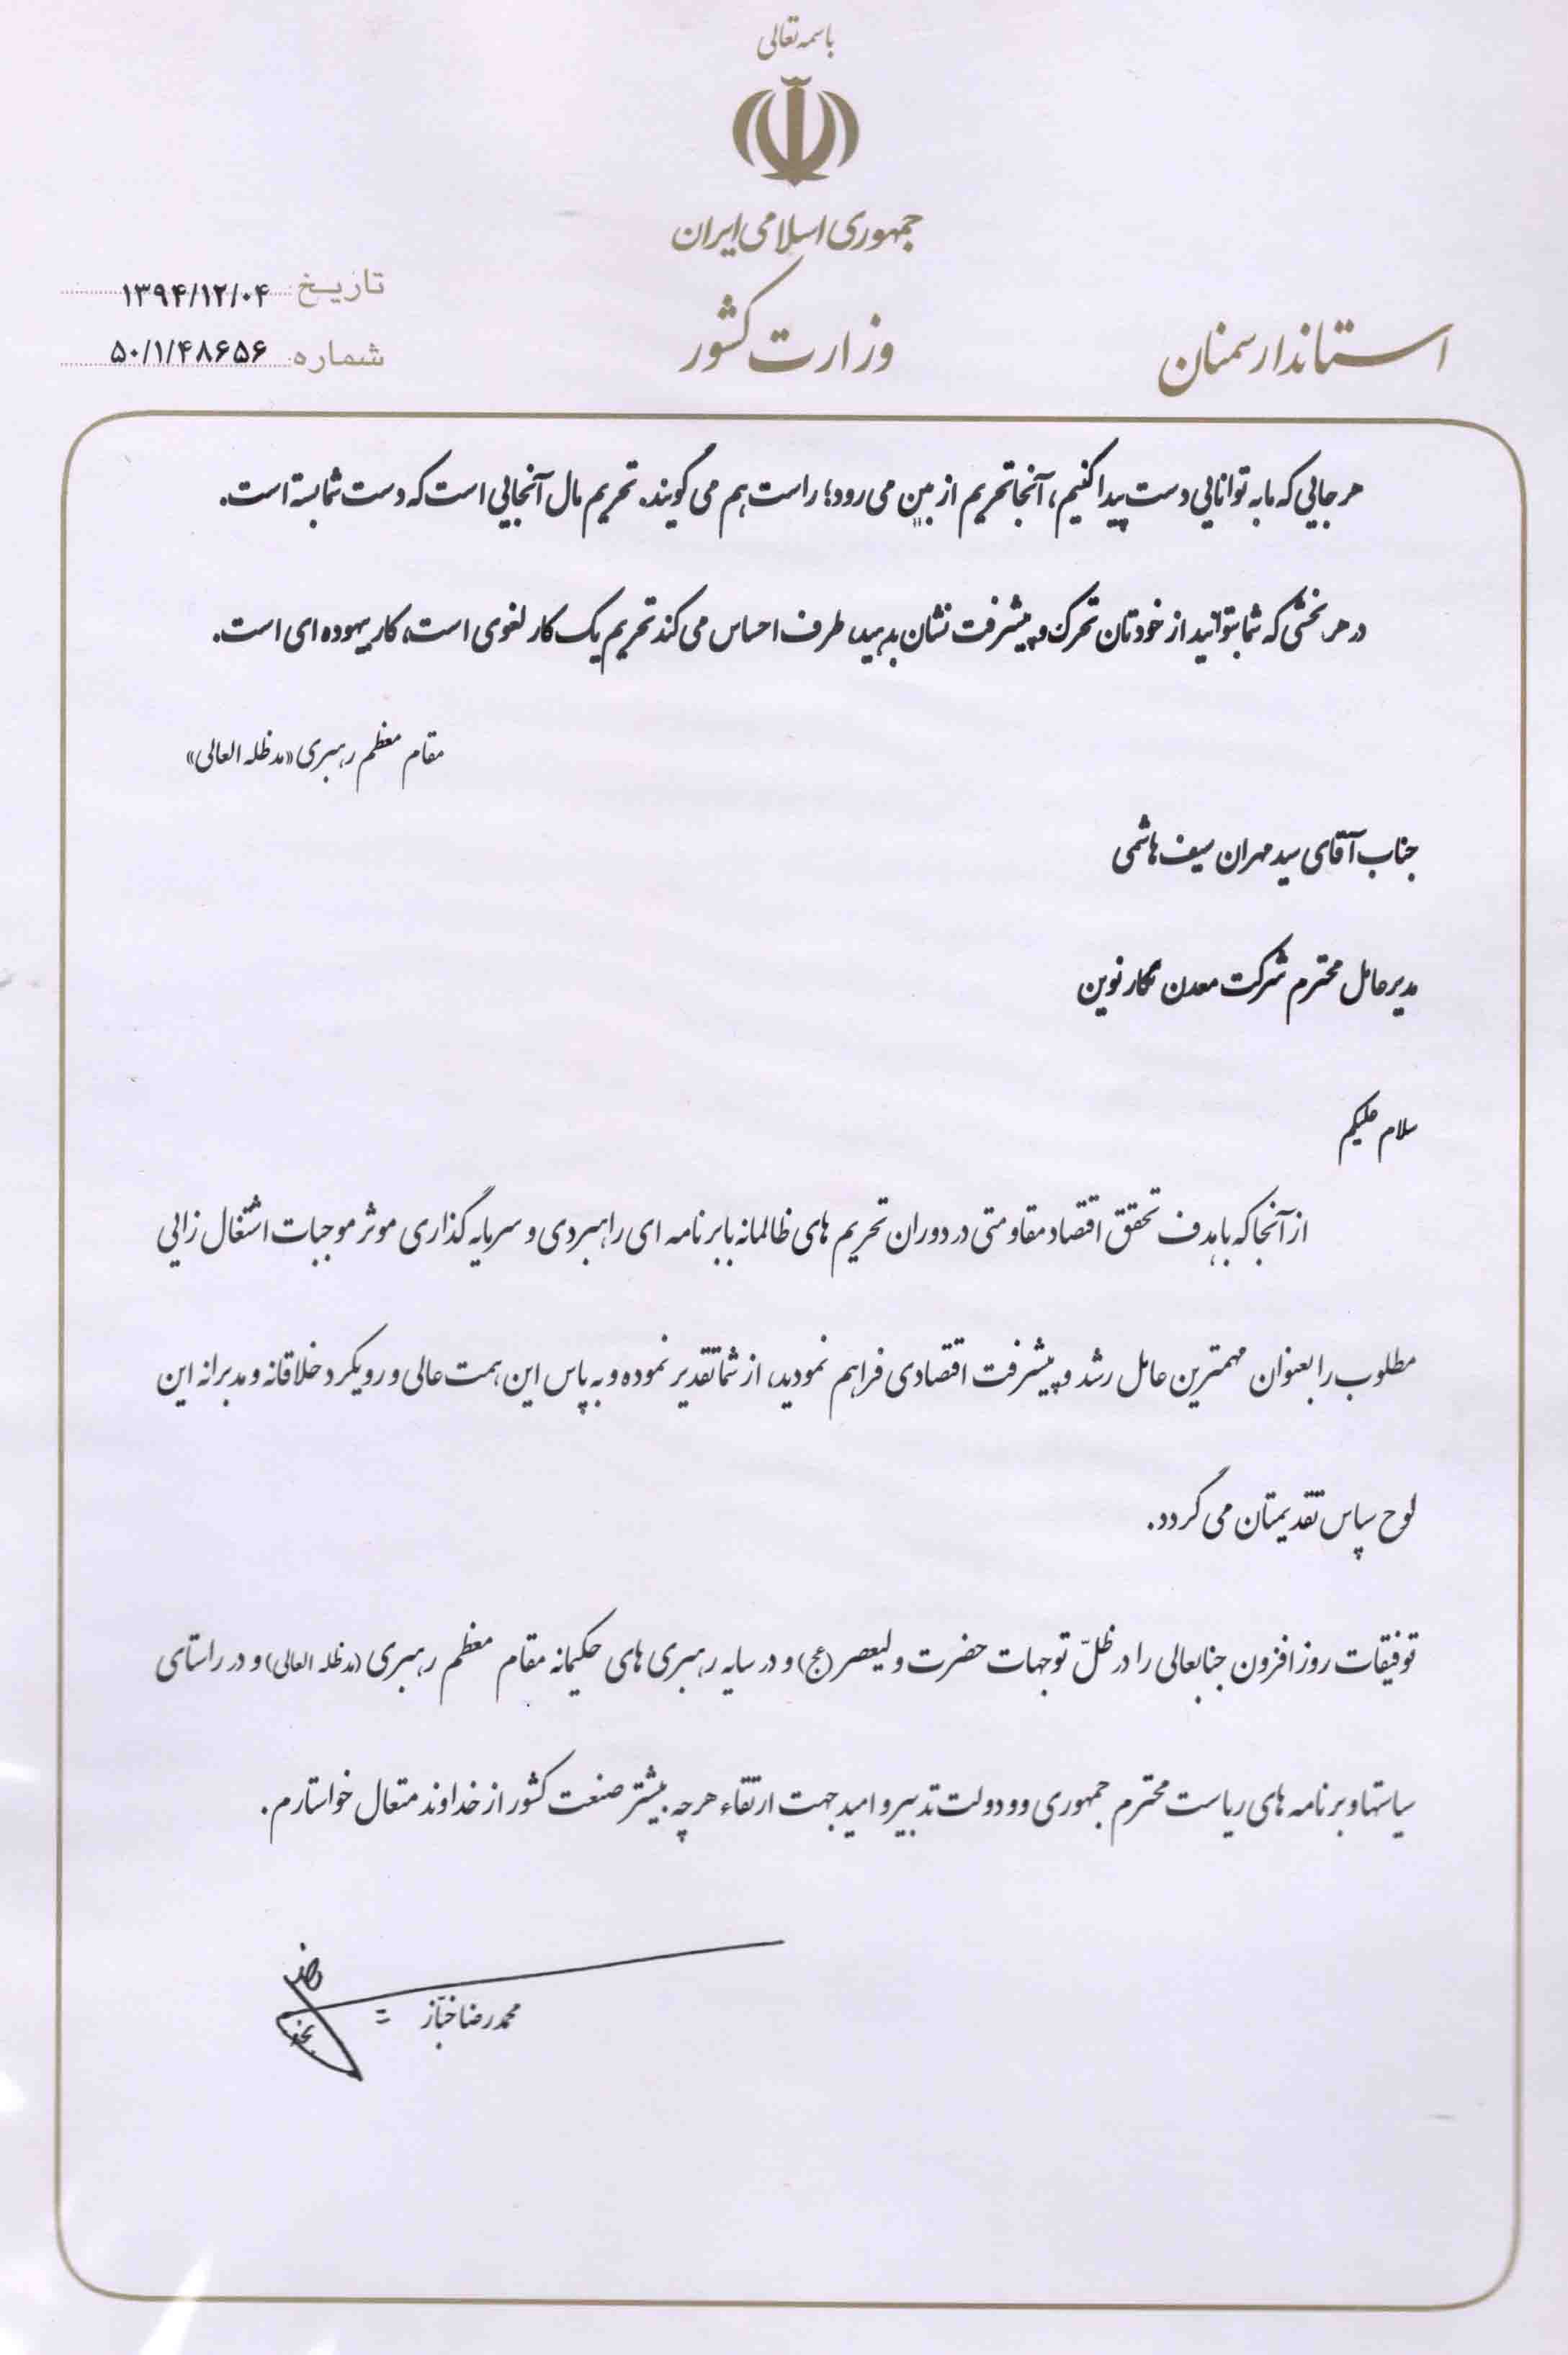 باسمه تعالی
جمهوری اسلامی ایران
وزارت کشور
استاندار سمنان
تاریخ: ۱۳۹۴/۱۲/۰۴
شماره: ۵۰/۱/۴۸۶۵۶
هر جایی که ما به توانایی دست پیدا کنیم، آنجا تحریم از بین می رود؛ راست هم می گویند. تحریم مال آنجایی است که دست شما بسته است.
در هر بخشی که شما بتوانید از خودتان تحرک و پیشرفت نشان بدهید، طرف احساس می کند تحریم یک کار لغوی است، کار بیهوده ای است.
مقام معظم رهبری «مدظله العالی»
جناب آقای سید مهران سیف هاشمی
مدیر عامل محترم شرکت معدن نگار نوین
سلام علیکم
از آنجا که با هدف تحقق اقتصاد مقاومتی در دوران تحریم های ظالمانه با برنامه ای راهبردی و سرمایه گذاری موثر موجبات اشتغال زائی
مطلوب را بعنوان مهمترین عامل رشد و پیشرفت اقتصادی فراهم نمودید، از شما تقدیر نموده و به پاس این همت عالی و رویکرد خلاقانه و مدبرانه این
لوح سپاس تقدیمتان می گردد.
توفیقات روز افزون جنابعالی را در ظلّ توجهات حضرت ولیعصر (عج) و در سایه رهبری های حکیمانه مقام معظم رهبری (مدظله العالی) و در راستای
سیاستها و برنامه های ریاست محترم جمهوری وو دولت تدبیر و امید جهت ارتقاء هر چه بیشتر صنعت کشور از خداوند متعال خواستارم.
محمد رضا خبّاز